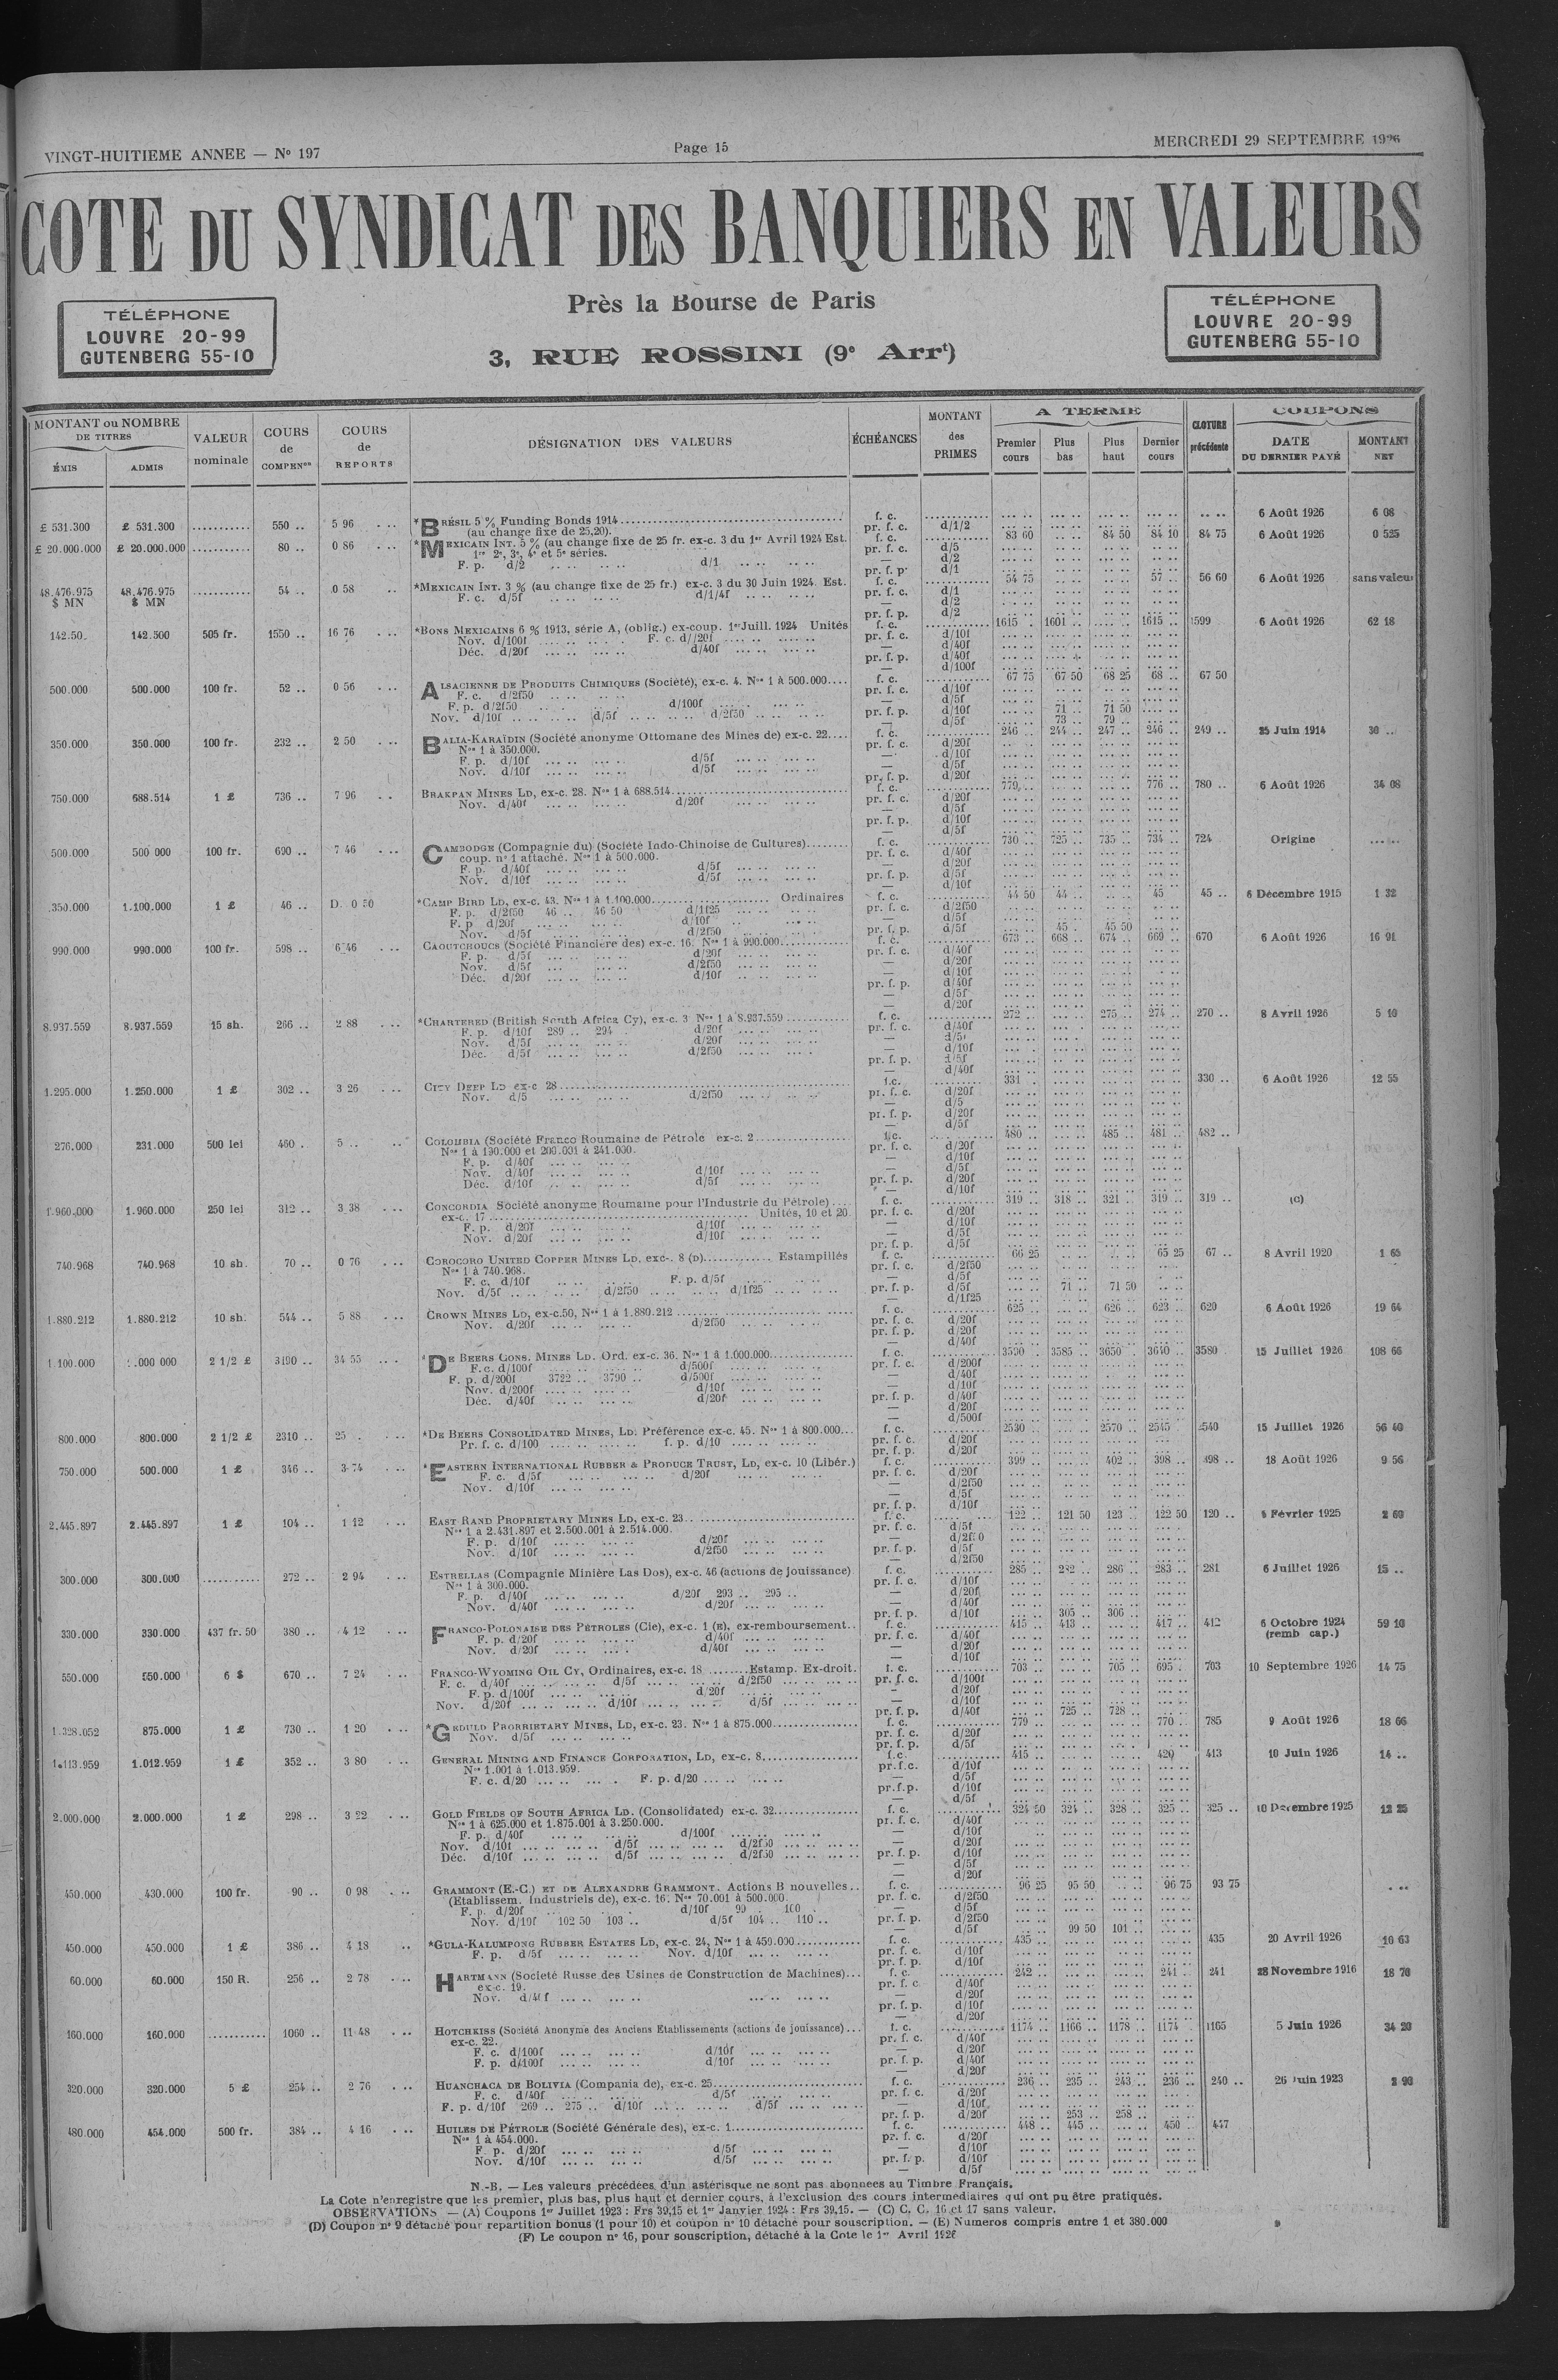 VINGT-HUITIEME ANNEE — No 197
Page 15
MERCREDI 29 SEPTEMBRE 1926
COTE DU SYNDICAT DES BANQUIERS EN VALEURS
Près la Bourse de Paris
3, RUE ROSSINI (9e Arrt)
TÉLÉPHONE
LOUVRE 20-99
GUTENBERG 55-10
TÉLÉPHONE
LOUVRE 20-99
GUTENBERG 55-10
MONTANT ou NOMBRE DE TITRES
ÉMIS ADMIS
VALEUR nominale
COURS de COMPENon
COURS de REPORTS
DÉSIGNATION DES VALEURS
ÉCHÉANCES
MONTANT des PRIMES
A TERME
Premier cours Plus bas Plus haut Dernier cours
CLOTURE précédente
COUPONS
DATE DU DERNIER PAYÉ MONTANT NET
£ 531.300 £ 531.300 ........... 550 .. 5 96 *BRÉSIL 5 % Funding Bonds 1914 f. c. 6 Août 1926 6 08
(au change fixe de 25,20). pr. f. c. d/1/2
£ 20.000.000 £ 20.000.000 ........... 80 .. 0 86 *MEXICAIN INT. 5 % (au change fixe de 25 fr. ex-c. 3 du 1er Avril 1924 Est. f. c. 83 60 84 50 84 10 84 75 6 Août 1926 0 525
1re 2e, 3e, 4e et 5e séries. pr. f. c. d/5
— d/2
F. p. d/2 d/1 pr. f. p. d/1
48.476.975 $ MN 48.476.975 $ MN ........... 54 .. 0 58 *MEXICAIN INT. 3 % (au change fixe de 25 fr.) ex-c. 3 du 30 Juin 1924. Est. f. c. 54 75 57 .. 56 60 6 Août 1926 sans valeur
F. c. d/5f d/1/4f pr. f. c. d/1
— d/2
pr. f. p. d/2
142.50 142.500 505 fr. 1550 .. 16 76 *BONS MEXICAINS 6 % 1913, série A, (oblig.) ex-coup. 1er Juill. 1924 Unités f. c. 1615 .. 1601 .. 1615 .. 1599 6 Août 1926 62 18
Nov. d/100f F. c. d//20f pr. f. c. d/10f
— d/40f
Déc. d/20f d/40f pr. f. p. d/40f
— d/100f
500.000 500.000 100 fr. 52 .. 0 56 ALSACIENNE DE PRODUITS CHIMIQUES (Société), ex-c. 4. Nos 1 à 500.000 f. c. 67 75 67 50 68 25 68 .. 67 50
F. c. d/2f50 pr. f. c. d/10f
F. p. d/2f50 d/100f — d/5f
Nov. d/10f d/5f d/2f50 pr. f. p. d/10f 71 .. 71 50
— d/5f 73 .. 79 ..
350.000 350.000 100 fr. 232 .. 2 50 BALIA-KARAÏDIN (Société anonyme Ottomane des Mines de) ex-c. 22 f. c. 246 .. 244 .. 247 .. 246 .. 249 .. 25 Juin 1914 30 ..
Nos 1 à 350.000. pr. f. c. d/20f
F. p. d/10f d/5f — d/10f
Nov. d/10f d/5f — d/5f
pr. f. p. d/20f
750.000 688.514 1 £ 736 .. 7 96 BRAKPAN MINES LD, ex-c. 28. Nos 1 à 688.514 f. c. 779 .. 776 .. 780 .. 6 Août 1926 34 08
Nov. d/40f d/20f pr. f. c. d/20f
— d/5f
pr. f. p. d/10f
— d/5f
500.000 500 000 100 fr. 690 .. 7 46 CAMBODGE (Compagnie du) (Société Indo-Chinoise de Cultures) f. c. 730 .. 725 .. 735 .. 734 .. 724 Origine
coup. no 1 attaché. Nos 1 à 500.000. pr. f. c. d/40f
F. p. d/40f d/5f — d/20f
Nov. d/10f d/5f pr. f. p. d/5f
— d/10f
.350.000 1.100.000 1 £ 46 .. D. 0 50 *CAMP BIRD LD, ex-c. 43. Nos 1 à 1.100.000 Ordinaires f. c. 44 50 44 .. 45 45 .. 6 Décembre 1915 1 32
F. p. d/2f50 46 .. 46 50 d/1f25 pr. f. c. d/2f50
F. p d/20f d/10f — d/5f
Nov. d/5f d/2f50 pr. f. p. d/5f 45 . 45 50
990.000 990.000 100 fr. 598 .. 6 46 CAOUTCHOUCS (Société Financière des) ex-c. 16. Nos 1 à 990.000 f. c. 673 .. 668 .. 674 .. 669 .. 670 6 Août 1926 16 91
F. p. d/5f d/20f pr. f. c. d/40f
Nov. d/5f d/2f50 — d/20f
Déc. d/20f d/10f — d/10f
pr. f. p. d/40f
— d/5f
— d/20f
8.937.559 8.937.559 15 sh. 266 .. 2 88 *CHARTERED (British South Africa Cy), ex-c. 3 Nos 1 à 8.937.559 f. c. 272 .. 275 .. 274 .. 270 .. 8 Avril 1926 5 10
F. p. d/10f 289 .. 294 d/20f pr. f. c. d/40f
Nov. d/5f d/20f — d/5f
Déc. d/5f d/2f50 — d/10f
pr. f. p. d/5f
— d/40f
1.295.000 1.250.000 1 £ 302 .. 3 26 CITY DEEP LD ex-c 28 f.c. 331 . 330 .. 6 Août 1926 12 55
Nov. d/5 d/2f50 pr. f. c. d/20f
— d/5
pr. f. p. d/20f
— d/5f
276.000 231.000 500 lei 460 . 5 .. COLOMBIA (Société Franco Roumaine de Pétrole ex-c. 2 f.c. 480 .. 485 .. 481 .. 482 ..
Nos 1 à 190.000 et 200.001 à 241.000. pr. f. c. d/20f
F. p. d/40f — d/10f
Nov. d/40f d/10f — d/5f
Déc. d/10f d/5f pr. f. p. d/20f
— d/10f
1.960.000 1.960.000 250 lei 312 .. 3 38 CONCORDIA Société anonyme Roumaine pour l'Industrie du Pétrole) f. c. 319 .. 318 .. 321 .. 319 .. 319 .. (C)
ex-c. 17 Unités, 10 et 20. pr. f. c. d/20f
F. p. d/20f d/10f — d/10f
Nov. d/20f d/10f — d/5f
pr. f. p. d/5f
740.968 740.968 10 sh. 70 .. 0 76 COROCORO UNITED COPPER MINES LD, exc-. 8 (D) Estampillés f. c. 66 25 65 25 67 .. 8 Avril 1920 1 65
Nos 1 à 740.968. pr. f. c. d/2f50
F. c. d/10f F. p. d/5f — d/5f
Nov. d/5f d/2f50 d/1f25 pr. f. p. d/5f 71 .. 71 50
— d/1f25
1.880.212 1.880.212 10 sh. 544 .. 5 88 CROWN MINES LD, ex-c.50, Nos 1 à 1.880.212 f. c. 625 .. 626 .. 623 .. 620 6 Août 1926 19 64
Nov. d/20f d/2f50 pr. f. c. d/20f
pr. f. p. d/20f
— d/40f
1 100.000 1.000 000 2 1/2 £ 3190 .. 34 55 *DE BEERS CONS. MINES LD. Ord. ex-c. 36. Nos 1 à 1.000.000 f. c. 3590 .. 3585 .. 3650 .. 3640 .. 3580 15 Juillet 1926 108 66
F. c. d/100f d/500f pr. f. c. d/200f
F. p. d/200f 3722 .. 3790 .. d/500f — d/40f
Nov. d/200f d/10f — d/10f
Déc. d/40f d/20f pr. f. p. d/40f
— d/20f
— d/500f
800.000 800.000 2 1/2 £ 2310 .. 25 . *DE BEERS CONSOLIDATED MINES, LD. Préférence ex-c. 45. Nos 1 à 800.000 f. c. 2530 .. 2570 .. 2545 2540 15 Juillet 1926 56 40
Pr. f. c. d/100 f. p. d/10 pr. f. c. d/20f
pr. f. p. d/20f
750.000 500.000 1 £ 346 .. 3 74 *EASTERN INTERNATIONAL RUBBER & PRODUCE TRUST, LD, ex-c. 10 (Libér.) f. c. 399 .. 402 .. 398 .. 398 .. 18 Août 1926 9 56
F. c. d/5f d/20f pr. f. c. d/20f
Nov. d/10f — d/2f50
— d/5f
pr. f. p. d/10f
2.445.897 2.445.897 1 £ 104 .. 1 12 EAST RAND PROPRIETARY MINES LD, ex-c. 23 f. c. 122 .. 121 50 123 .. 122 50 120 .. Février 1925 2 60
Nos 1 à 2.431.897 et 2.500.001 à 2.514.000. pr. f. c. d/5f
F. p. d/10f d/20f — d/2f50
Nov. d/10f d/2f50 pr. f. p. d/5f
— d/2f50
300.000 300.000 ........... 272 .. 2 94 ESTRELLAS (Compagnie Minière Las Dos), ex-c. 46 (actions de jouissance) f. c. 285 .. 282 .. 286 .. 283 .. 281 6 Juillet 1926 15 ..
Nos 1 à 300.000. pr. f. c. d/10f
F. p. d/40f d/20f 293 .. 295 .. — d/20f
Nov. d/40f d/20f — d/40f
pr. f. p. d/10f 305 .. 306 ..
330.000 330.000 437 fr. 50 380 .. 4 12 FRANCO-POLONAISE DES PÉTROLES (Cie), ex-c. 1 (E), ex-remboursement f. c. 415 .. 413 .. 417 .. 412 6 Octobre 1924 59 10
(remb cap.)
F. p. d/20f d/40f pr. f. c. d/40f
Nov. d/20f d/40f — d/20f
— d/10f
550.000 550.000 6 $ 670 .. 7 24 FRANCO-WYOMING OIL CY, Ordinaires, ex-c. 18 Estamp. Ex-droit. f. c. 703 .. 705 .. 695 . 703 10 Septembre 1926 14 75
F. c. d/40f d/5f d/2f50 pr. f. c. d/100f
F. p. d/100f d/20f — d/20f
Nov. d/20f d/10f d/5f — d/10f
pr. f. p. d/40f 725 .. 728 ..
1.328.052 875.000 1 £ 730 .. 1 20 *GEDULD PRORRIETARY MINES, LD, ex-c. 23. Nos 1 à 875.000 f. c. 779 .. 770 .. 785 9 Août 1926 18 66
Nov. d/5f pr. f. c. d/20f
pr. f. p. d/5f
1.113.959 1.012.959 1 £ 352 .. 3 80 GENERAL MINING AND FINANCE CORPORATION, LD, ex-c. 8 f.c. 415 .. 420 413 10 Juin 1926 14 ..
Nos 1.001 à 1.013.959. pr.f.c. d/10f
F. c. d/20 F. p. d/20 — d/5f
pr.f.p. d/10f
— d/5f
2.000.000 2.000.000 1 £ 298 .. 3 22 GOLD FIELDS OF SOUTH AFRICA LD. (Consolidated) ex-c. 32 f. c. 324 50 324 .. 328 .. 325 .. 325 .. 10 Décembre 1925 12 25
Nos 1 à 625.000 et 1.875.001 à 3.250.000. pr. f. c. d/40f
F. p. d/40f d/100f — d/10f
Nov. d/10f d/5f d/2f50 — d/20f
Déc. d/10f d/5f d/2f50 pr. f. p. d/10f
— d/5f
— d/20f
450.000 430.000 100 fr. 90 .. 0 98 GRAMMONT (E.-C.) ET DE ALEXANDRE GRAMMONT. Actions B nouvelles f. c. 96 25 95 50 96 75 93 75
(Etablissem. Industriels de), ex-c. 16. Nos 70.001 à 500.000. pr. f. c. d/2f50
F. p. d/20f d/10f 99 . 100 . — d/5f
Nov. d/10f 102 50 103 .. d/5f 104 .. 110 .. pr. f. p. d/2f50
— d/5f 99 50 101 ..
450.000 450.000 1 £ 386 .. 4 18 *GULA-KALUMPONG RUBBER ESTATES LD, ex-c. 24, Nos 1 à 450.000 f. c. 435 .. 435 20 Avril 1926 10 63
F. p. d/5f Nov. d/10f pr. f. c. d/10f
pr. f. p. d/10f
60.000 60.000 150 R. 256 .. 2 78 HARTMANN (Societé Russe des Usines de Construction de Machines) f. c. 242 .. 241 .. 241 28 Novembre 1916 18 70
ex-c. 19. pr. f. c d/40f
Nov. d/40f — d/20f
pr. f. p. d/10f
— d/20f
160.000 160.000 ........... 1060 .. 11 48 HOTCHKISS (Société Anonyme des Anciens Etablissements (actions de jouissance) f. c. 1174 .. 1166 .. 1178 .. 1174 1165 5 Juin 1926 34 20
ex-c. 22. pr. f. c. d/40f
F. c. d/100f d/10f — d/20f
F. p. d/100f d/10f pr. f. p. d/40f
— d/20f
320.000 320.000 5 £ 254 .. 2 76 HUANCHACA DE BOLIVIA (Compania de), ex-c. 25 f. c. 236 .. 235 .. 243 .. 236 .. 240 .. 26 Juin 1923 2 90
F. c. d/40f d/5f pr. f. c. d/20f
F. p. d/10f 269 .. 275 .. d/10f d/5f — d/10f
pr. f. p. d/20f 253 .. 258 ..
480.000 454.000 500 fr. 384 .. 4 16 HUILES DE PÉTROLE (Société Générale des), ex-c. 1 f. c. 448 .. 445 .. 450 .. 447
Nos 1 à 454.000. pr. f. c. d/20f
F. p. d/20f d/5f — d/10f
Nov. d/10f d/5f pr. f. p. d/10f
— d/5f
N.-B. — Les valeurs précédées d'un astérisque ne sont pas abonnees au Timbre Français.
La Cote n'enregistre que les premier, plus bas, plus haut et dernier cours, à l'exclusion des cours intermediaires qui ont pu être pratiqués.
OBSERVATIONS — (A) Coupons 1er Juillet 1923 : Frs 39,15 et 1er Janvier 1924 : Frs 39,15. — (C) C. C. 16 et 17 sans valeur.
(D) Coupon no 9 détaché pour repartition bonus (1 pour 10) et coupon no 10 détaché pour souscription. — (E) Numeros compris entre 1 et 380.000
(F) Le coupon no 16, pour souscription, détaché à la Cote le 1er Avril 1926